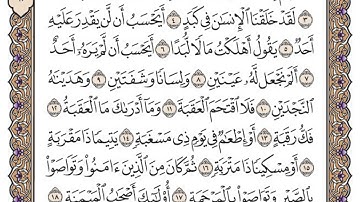 ٣ لَقَدْ خَلَقْنَا ٱلْإِنسَٰنَ فِى كَبَدٍ ٤ أَيَحْسَبُ أَن لَّن يَقْدِرَ عَلَيْهِ
أَحَدٌ ٥ يَقُولُ أَهْلَكْتُ مَالًا لُّبَدًا ٦ أَيَحْسَبُ أَن لَّمْ يَرَهُۥٓ أَحَدٌ
٧ أَلَمْ نَجْعَل لَّهُۥ عَيْنَيْنِ ٨ وَلِسَانًا وَشَفَتَيْنِ ٩ وَهَدَيْنَٰهُ
ٱلنَّجْدَيْنِ ١٠ فَلَا ٱقْتَحَمَ ٱلْعَقَبَةَ ١١ وَمَآ أَدْرَىٰكَ مَا ٱلْعَقَبَةُ ١٢
فَكُّ رَقَبَةٍ ١٣ أَوْ إِطْعَٰمٌ فِى يَوْمٍ ذِى مَسْغَبَةٍ ١٤ يَتِيمًا ذَا مَقْرَبَةٍ
١٥ أَوْ مِسْكِينًا ذَا مَتْرَبَةٍ ١٦ ثُمَّ كَانَ مِنَ ٱلَّذِينَ ءَامَنُوا۟ وَتَوَاصَوْا۟
بِٱلصَّبْرِ وَتَوَاصَوْا۟ بِٱلْمَرْحَمَةِ ١٧ أُو۟لَٰٓئِكَ أَصْحَٰبُ ٱلْمَيْمَنَةِ ١٨